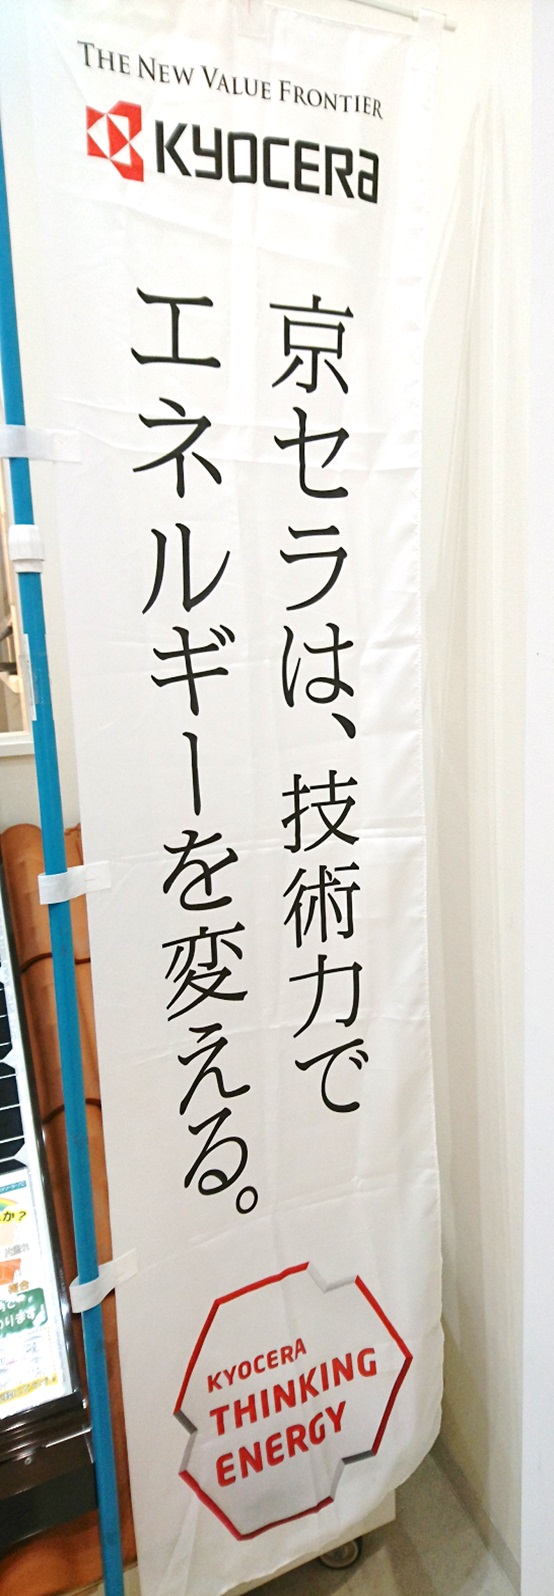 THE NEW VALUE FRONTIER
KYOCERA
京セラは、技術力で
エネルギーを変える。
KYOCERA
THINKING
ENERGY
か?